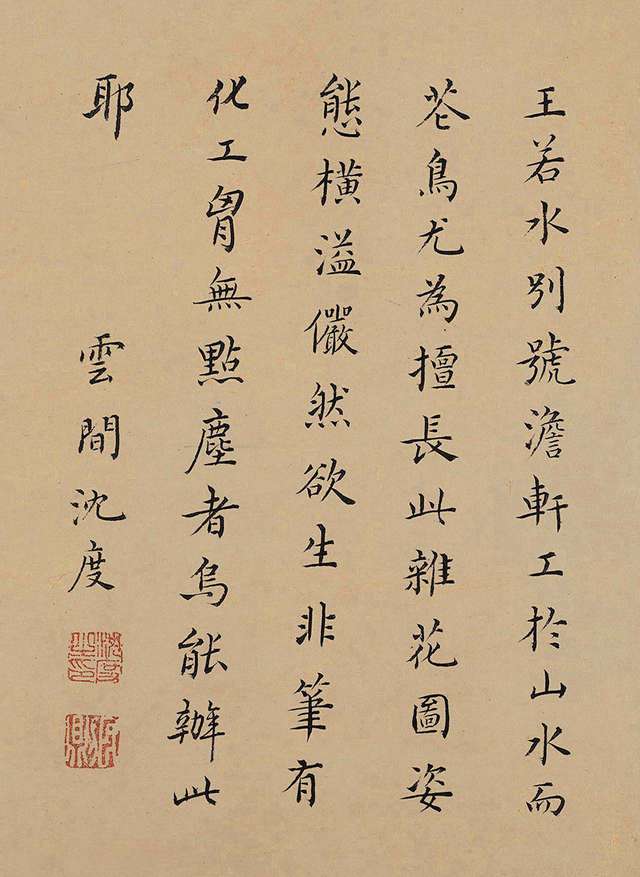 王若水别號澹軒工於山水而
花鳥尤為擅長此雜花圖姿
態橫溢儼然欲生非筆有
化工胷無點塵者烏能辦此
耶
雲間沈度